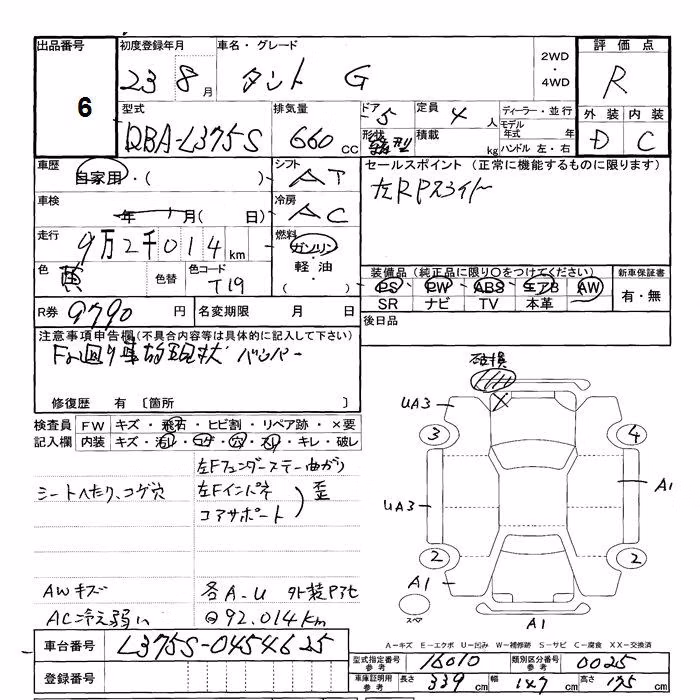 出品番号 初度登録年月 車名・グレード 評価点
6
23 8月 タント G 2WD ・ 4WD R
型式 排気量 ドア 定員 ディーラー・並行 外装 内装
DBA-L375S 660 CC 5 形状 4人 積載 kg モデル年式 年 ハンドル 左・右 D C
車歴 自家用・( ) シフト AT セールスポイント (正常に機能するものに限ります)
車検 年 月( 日) 冷房 AC 左RPスライドー
走行 9万2千014km 燃料 ガソリン・軽油・( )
色 黄 色替 色コード T19 装備品(純正品に限り○をつけてください) 新車保証書
PS PW ABS エアB AW 有・無
SR ナビ TV 本革
R券 9790円 名変期限 月 日 後日品
注意事項申告欄(不具合内容等は具体的に記入して下さい)
Fメ回り事故現状 バンパー
修復歴 有 〔箇所 〕
検査員 FW キズ・飛石・ヒビ割・リペア跡・×要
記入欄 内装 キズ・汚レ・コゲ・穴・スレ・キレ・破レ
左Fフェンダーステー曲がり
シートへたり、コゲ穴 左Fインパネ
コアサポート 歪
AWキズ 各A-U 外装
AC冷え弱い 92,014km
車台番号 L375S-0454625
登録番号
破損
UA3
3 4
UA3 A1
2 2
A1
スペア A1
A-キズ E-エクボ U-凹み W-補修跡 S-サビ C-腐食 XX-交換済
型式指定番号 参考 16010 類別区分番号 参考 0025
車庫証明用 参考 長さ 339cm 幅 147cm 高さ 175cm